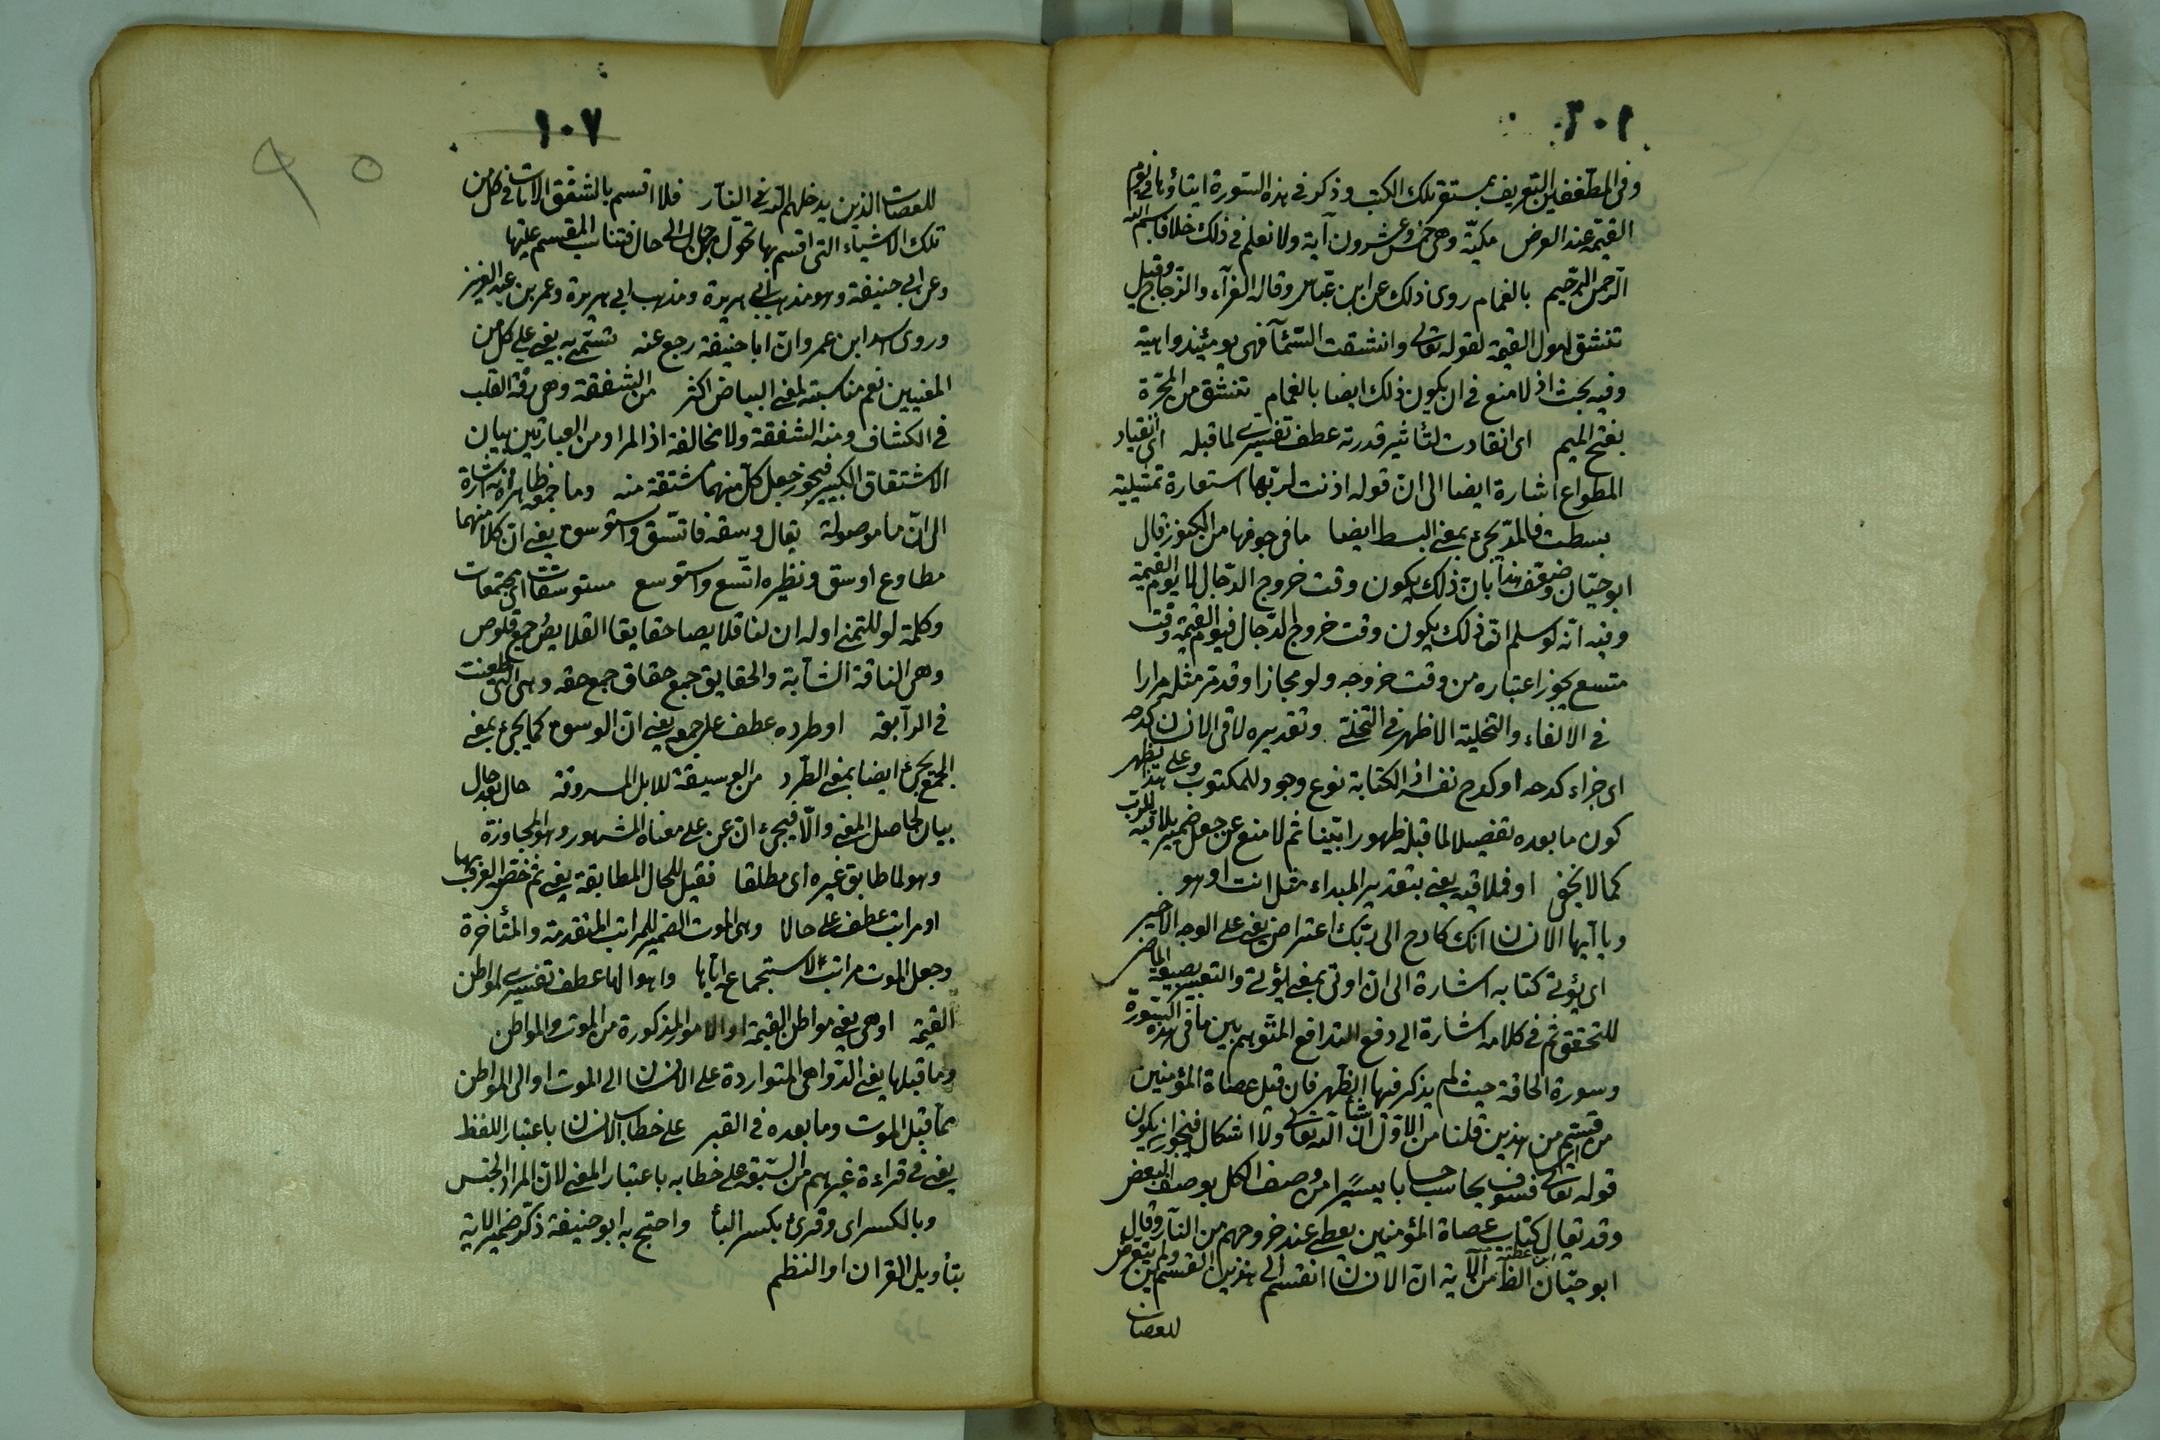 ١٠٦
وفى المطففين التعريف بمستقر تلك الكتب وذكر فى هذه السورة ايتاؤها فى يوم
القيمة عند العرض مكية وهى خمس وعشرون آية ولا نعلم فى ذلك خلافا بسم الله
الرحمن الرحيم بالغمام روى ذلك عن ابن عباس وقاله الفرآء والزجاج وقيل
تنشق لهول القيمة لقوله تعالى وانشقت السمآء فهى يومئذ واهية
وفيه بحث اذ لا منع فى ان يكون ذلك ايضا بالغمام تنشق من المجرّة
بفتح الميم اى انقادت لتأثير قدرته عطف تفسيرى لما قبله اى انقياد
المطواع اشارة ايضا الى ان قوله اذنت لربها استعارة تمثيلية
بسطت فالمدّ يجىء بمعنى البسط ايضا ما فى جوفها من الكنوز قال
ابو حيّان وضعف هذا بان ذلك يكون وقت خروج الدجال لا يوم القيمة
وفيه انّه لو سلم ان ذلك يكون وقت خروج الدجال فيوم القيمة وقت
متسع يجوز اعتباره من وقت خروجه ولو مجازا وقد مرّ مثله مرارا
فى الالقاء والتخلية الاظهر فى التخلى وتقديره لاقى الانسان كدحه
اى جزاء كدحه او كدح نفسه اذ الكتابة نوع وجود للمكتوب وعلى هذا يظهر
كون ما بعده تفصيلا لما قبله ظهورا بيّنا ثم لا منع عن جعل ضمير ملاقيه للرب
كما لا يخفى او فملاقيه يعنى بتقدير المبداء مثل انت او هو
ويا ايها الانسان انك كادح الى ربك اعتراض يعنى على الوجه الاخير
اى يؤتى كتابه اشارة الى ان اوتى بمعنى يؤتى والتعبير بصيغة الماضى
للتحقق ثم فى كلامه اشارة الى دفع التدافع المتوهم بين ما فى هذه السورة
وسورة الحاقة حيث لم يذكر فيها الظهر فان قيل عصاة المؤمنين
من اى قسم من هذين قلنا من الاوّل ان شاء الله تعالى ولا اشكال فيجوز ان يكون
قوله تعالى فسوف يحاسب حسابا يسيرا من وصف الكل بوصف البعض
وقد يقال كتاب عصاة المؤمنين يعطى عند خروجهم من النار وقال
ابو حيّان الظ من الآية ان الانسان انقسم الى هذين القسمين ولم يتعرض
ابن عطية
للعصات
١٠٧
٩٥
للعصات الذين يدخلهم الله فى النار فلا اقسم بالشفق الآيات فى كل من
تلك الاشياء التى اقسم بها تحول من حال الى حال فتناسب المقسم عليها
وعن ابى حنيفة وهو مذهب ابى هريرة ومذهب ابى هريرة وعمر بن عبد العزيز
وروى اسد ابن عمرو انّ ابا حنيفة رجع عنه تسمّى به يعنى على كل من
المعنيين نعم مناسبته لمعنى البياض اكثر من الشفقة وهى رقة القلب
فى الكشاف ومنه الشفقة ولا مخالفة اذ المراد من العبارتين بيان
الاشتقاق الكبير فيجوز جعل كل منهما مشتقة منه وما جمعه ظاهره اشارة
الى انّ ما موصولة يقال وسقه فاتّسق واستوسق يعنى ان كلا منهما
مطاوع اوسق ونظيره اتّسع واستوسع مستوسقات اى مجتمعات
وكلمة لو للتمنى اوله ان لنا قلايصا حقايقا القلايص جمع قلوص
وهى الناقة الشابة والحقايق جمع حقاق جمع حقه وهى التى طعنت
فى الرابعة او طرده عطف على جمعه يعنى ان الوسق كما يجىء بمعنى
الجمع يجىء ايضا بمعنى الطرد من الوسيقة للابل المسروقة حال بعد حال
بيان لحاصل المعنى والّا فيجىء ان عن على معناه المشهور وهو المجاوزة
وهو لما طابق غيره اى مطلقا فقيل للحال المطابقة يعنى ثم خصّ العرف بها
او مراتب عطف على حالا وهى الموت الضمير للمراتب المتقدمة والمتأخرة
وجعل الموت مراتب لاستجماعه اياها واهوالها عطف تفسيرى لمواطن
القيمة او هى يعنى مواطن القيمة او الامور المذكورة من الموت والمواطن
وما قبلها يعنى الدواهى المتواردة على الانسان الى الموت او الى المواطن
مما قبل الموت وما بعده فى القبر على خطاب الانسان باعتبار اللفظ
يعنى فى قراءة غيرهم من السبعة على خطابه باعتبار المعنى لان المراد الجنس
وبالكسر اى وقرئ بكسر البآء واحتج به ابو حنيفة ذكر ضمير الآية
بتأويل القران او النظم